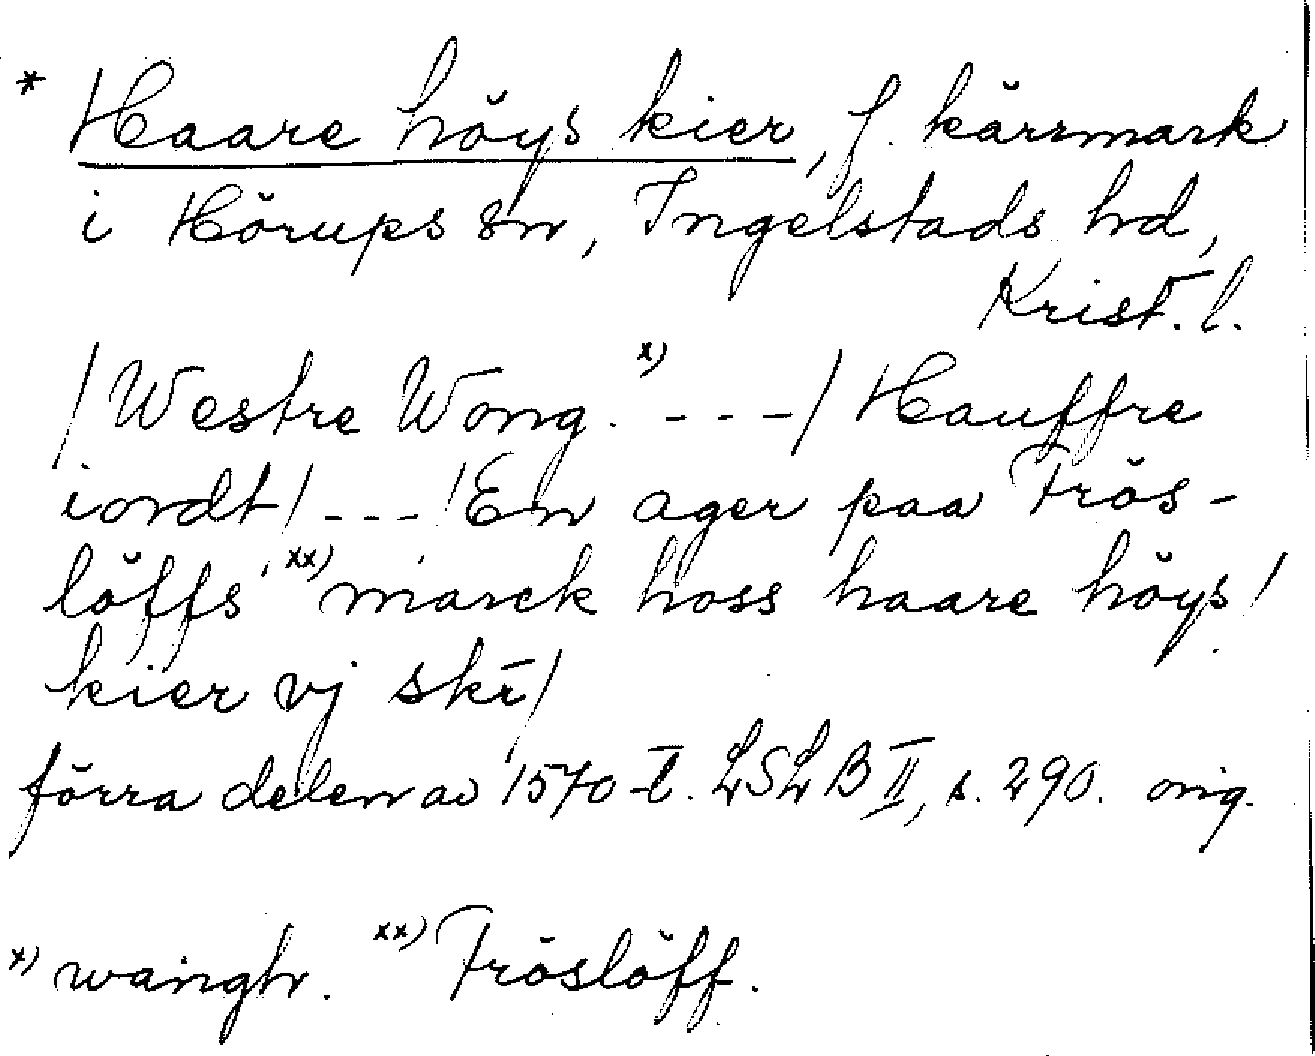 * Haare höys kier, f. kärrmark
i Hörups sn, Ingelstads hd,
Krist. l.
/Westre Wong. x) - - -/ Hauffre
iordt/ - - - /En ager paa Frös-
löffs xx) marck hoss haare höys/
kier vj skr̄/
förra delen av 1570-t. LSLB II, s. 290. orig.
x) wangh. xx) Fröslöff.